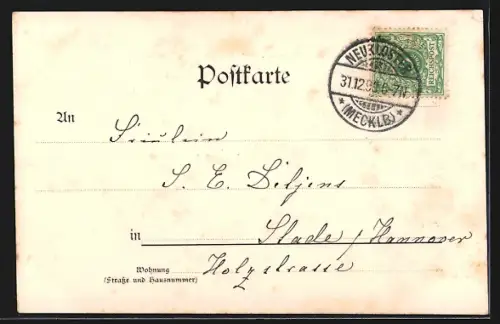 NEUKLOSTER
31.12.99.6-7N.
* (MECKLB) *
REICHSPOST
Postkarte
An
Fräulein
S. E. Diljens
in Stade / Hannover
Wohnung Holzstrasse
(Straße und Hausnummer)